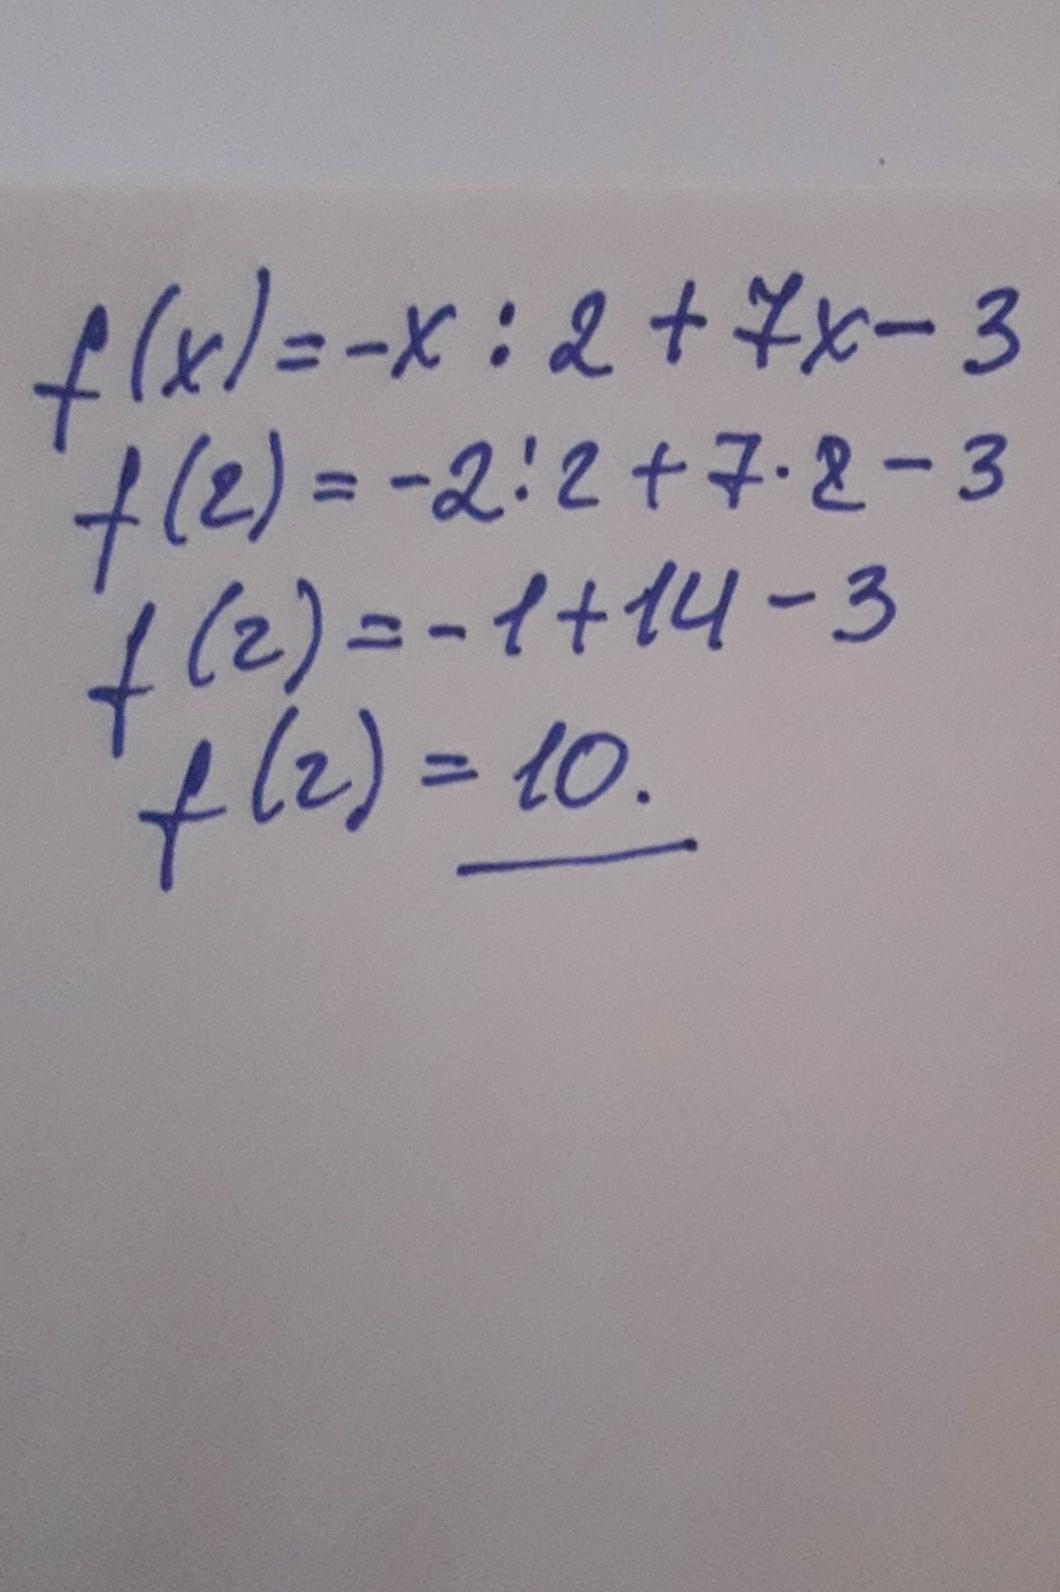 f(x)=-x:2+7x-3
f(2)=-2:2+7·2-3
f(2)=-1+14-3
f(2)=10.